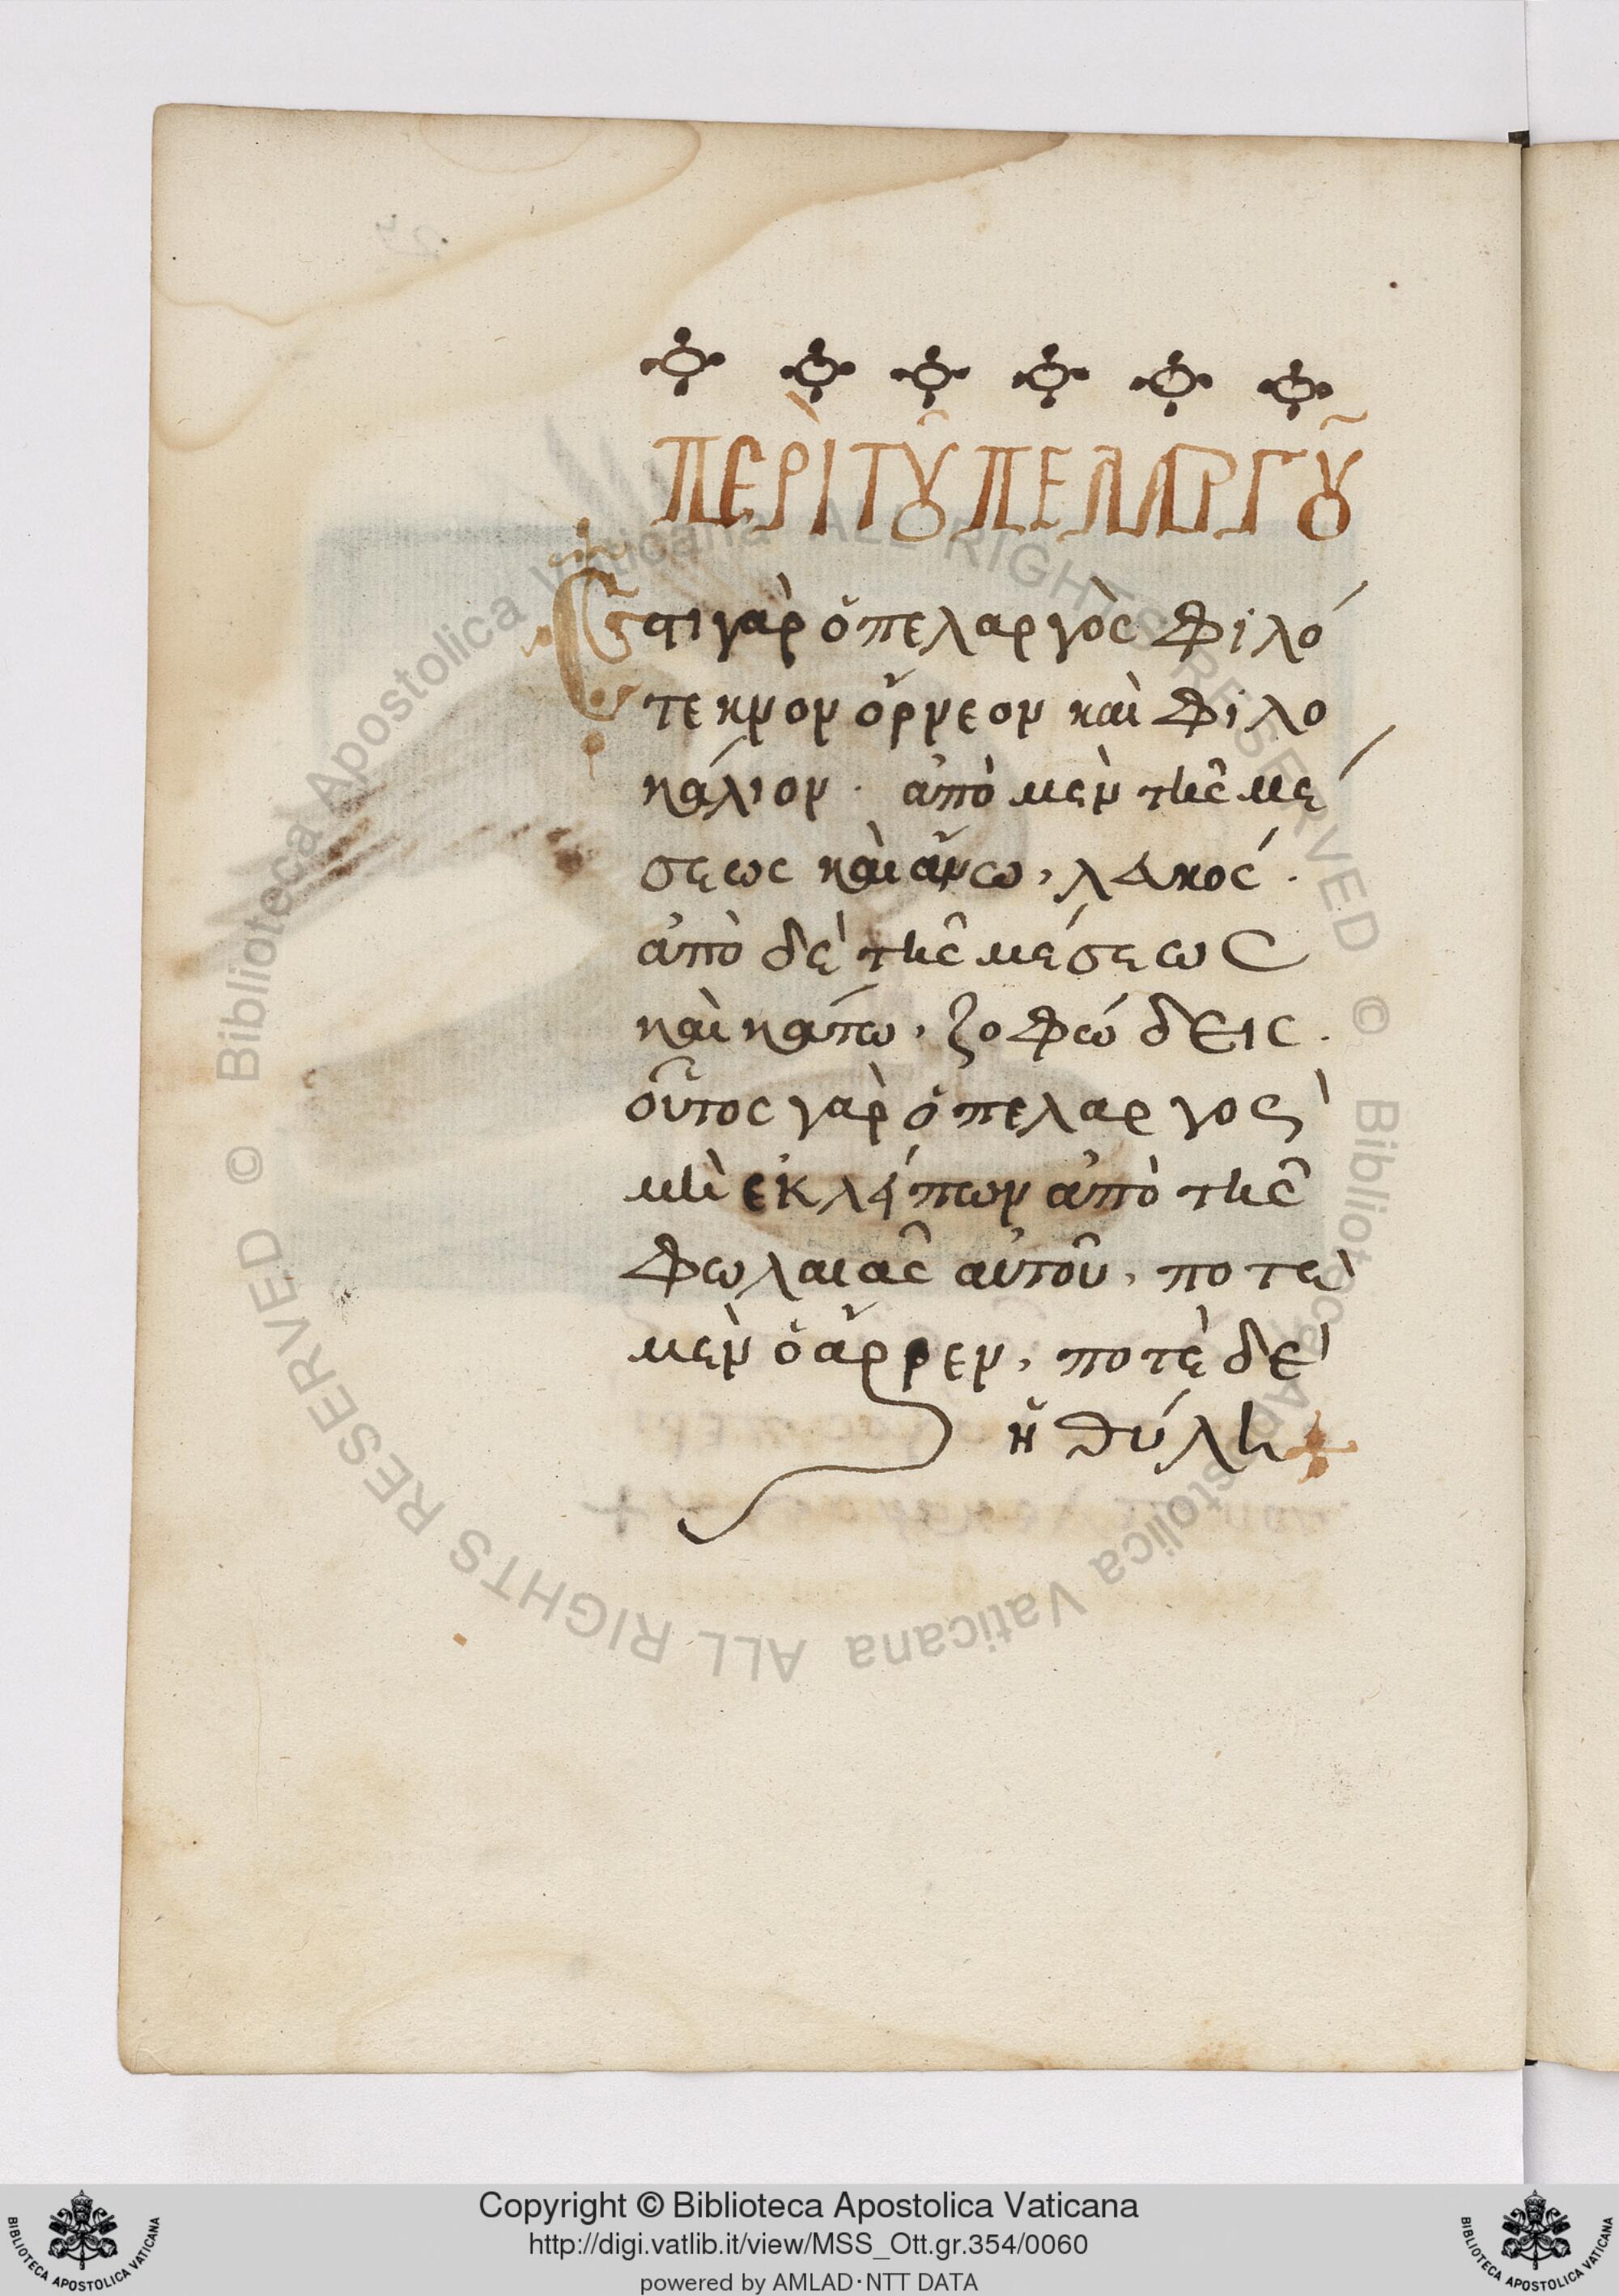 ΠΕΡῚ ΤΟΥ͂ ΠΕΛΑΡΓΟΥ͂
Ἔστι γὰρ ὁ πελαργὸς φιλό
τεκνον ὄρνεον καὶ φιλο
κάλιον · ἀπὸ μὲν τῆς μέ
σεως καὶ ἄνω, λακός ·
ἀπὸ δὲ τῆς μέσεως
καὶ κάτω, ζοφώδεις ·
οὗτος γὰρ ὁ πελαργὸς
μὴ ἐκλίπων ἀπὸ τῆς
φωλαιᾶς αὐτοῦ, ποτὲ
μὲν ὁ ἄρρεν, ποτὲ δὲ
ἡ θύλη
© Biblioteca Apostolica Vaticana ALL RIGHTS RESERVED © Biblioteca Apostolica Vaticana ALL RIGHTS RESERVED
Copyright © Biblioteca Apostolica Vaticana
http://digi.vatlib.it/view/MSS_Ott.gr.354/0060
powered by AMLAD·NTT DATA
BIBLIOTECA APOSTOLICA VATICANA
BIBLIOTECA APOSTOLICA VATICANA